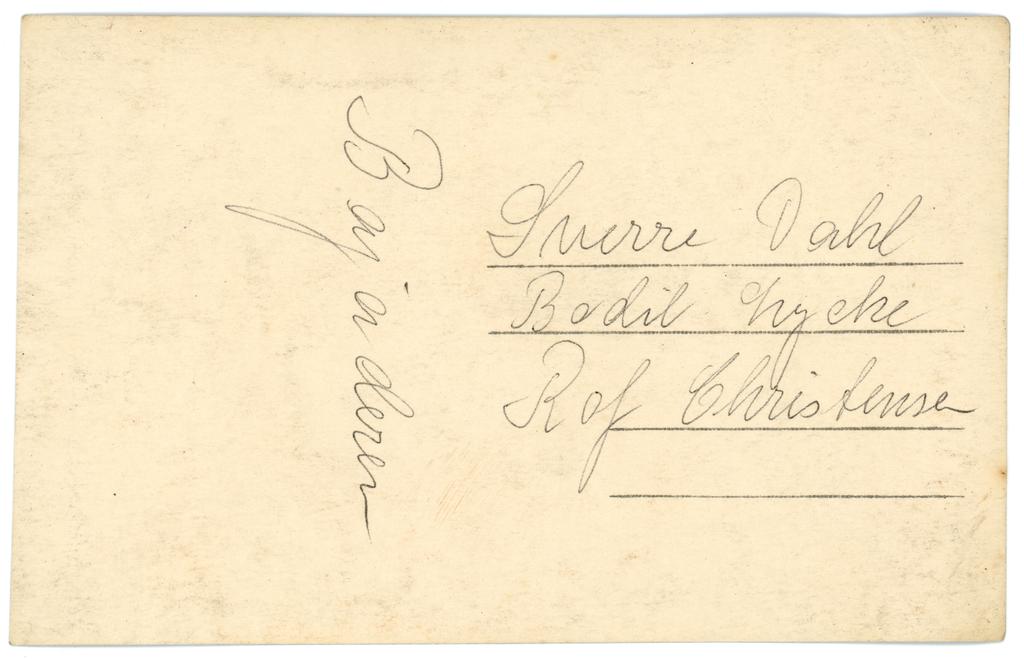 Bajaderen
Sverre Dahl
Bodil Lycke
Rof Christensen